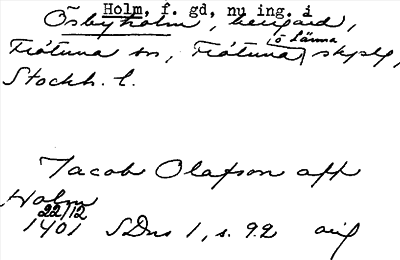 Holm, f. gd, nu ing. i
Ösbyholm, herrgård,
o Länna
Frötuna sn, Frötuna skplg,
Stockh. l.
Jacob Olafson aff
Holm
22/12
1401 SDns 1, s. 92 avig